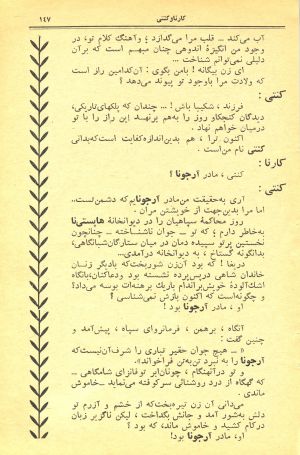 کارنا و کنتی
۱۴۷
آب می‌کند ــ قلب مرا می‌گدازد ؛ و آهنگ کلام تو ، در
وجود من انگیزهٔ اندوهی چنان مبهم است که بر آن
دلیلی نمی‌توانم شناخت ...
ای زن بیگانه ! با من بگوی : آن کدامین راز است
که ولادت مرا با وجود تو پیوند می‌دهد ؟
کنتی :
فرزند ، شکیبا باش !... چندان که پلکهای تاریکی،
دیدگان کنجکاو روز را به هم برنهد این راز را با تو
درمیان خواهم نهاد .
اکنون ترا ، هم بدین اندازه کفایت است که بدانی
کنتی نام من است .
کارنا :
کنتی ، مادر آرجونا ؟
کنتی :
آری به حقیقت من مادر آرجونایم که دشمن تست..
اما مرا بدین جهت از خویشتن مران .
روز محاکمهٔ سپاهیان را در دیوانخانهٔ هایستی‌نا
به خاطر دارم ؛ که تو ــ جوان ناشناخته ــ چنانچون
نخستین پرتو سپیده دمان در میان ستارگان شبانگاهی،
بدانگونه گستاخ ، به دیوانخانه درآمدی...
دریغا ! که بود آن زن شوربخت که با دیگر زنان
خاندان شاهی در پس پرده نشسته بود و دعا کنان، با نگاه
اشک آلودهٔ خویش بر اندام باریک برهنه‌ات بوسه می‌داد؟
و چگونه است که اکنون بازش نمی‌شناسی ؟
او ، مادر آرجونا بود !
آنگاه ، برهمن ، فرمانروای سپاه ، پیش آمد و
چنین گفت :
« ــ هیچ جوان حقیر تباری را شرف آن نیست که
آرجونا را به نبرد تن به تن فراخواند».
و تو در آنهنگام ، چونان ابر توفانزای شامگاهی ــ
که گهگاه از درد روشنائی سرکوفته می‌نماید ــ خاموش
ماندی .
می‌دانی آن زن تیره بخت که از خشم و آزرم تو
دلش به شور آمد و جانش بگداخت ، لیکن ناگزیر زبان
در کام کشید و خاموش ماند، که بود ؟
او ، مادر آرجونا بود!